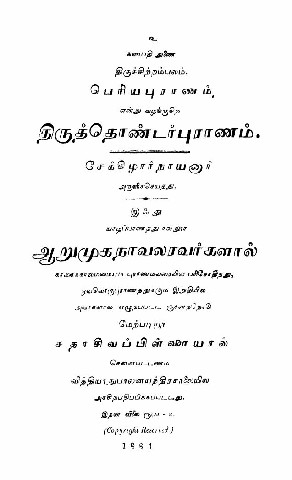 உ
கணபதி துணை
திருச்சிற்றம்பலம்.
பெரியபுராணம்,
என்று வழங்குகிற
திருத்தொண்டர்புராணம்.
சேக்கிழார்நாயனார்
அருளிச்செய்தது.
இஃது
யாழ்ப்பாணத்து நல்லூர்
ஆறுமுகநாவலரவர்களால்
பரிசோதித்து,
இறுதியில்
மேற்படியூர்
சதாசிவப்பிள்ளையால்
சென்னபட்டணம்
வித்தியாநுபாலனயந்திரசாலையில்
அச்சிற்பதிப்பிக்கப்பட்டது.
இதன் விலை ரூபா
(Copyright Reserved.)
1884